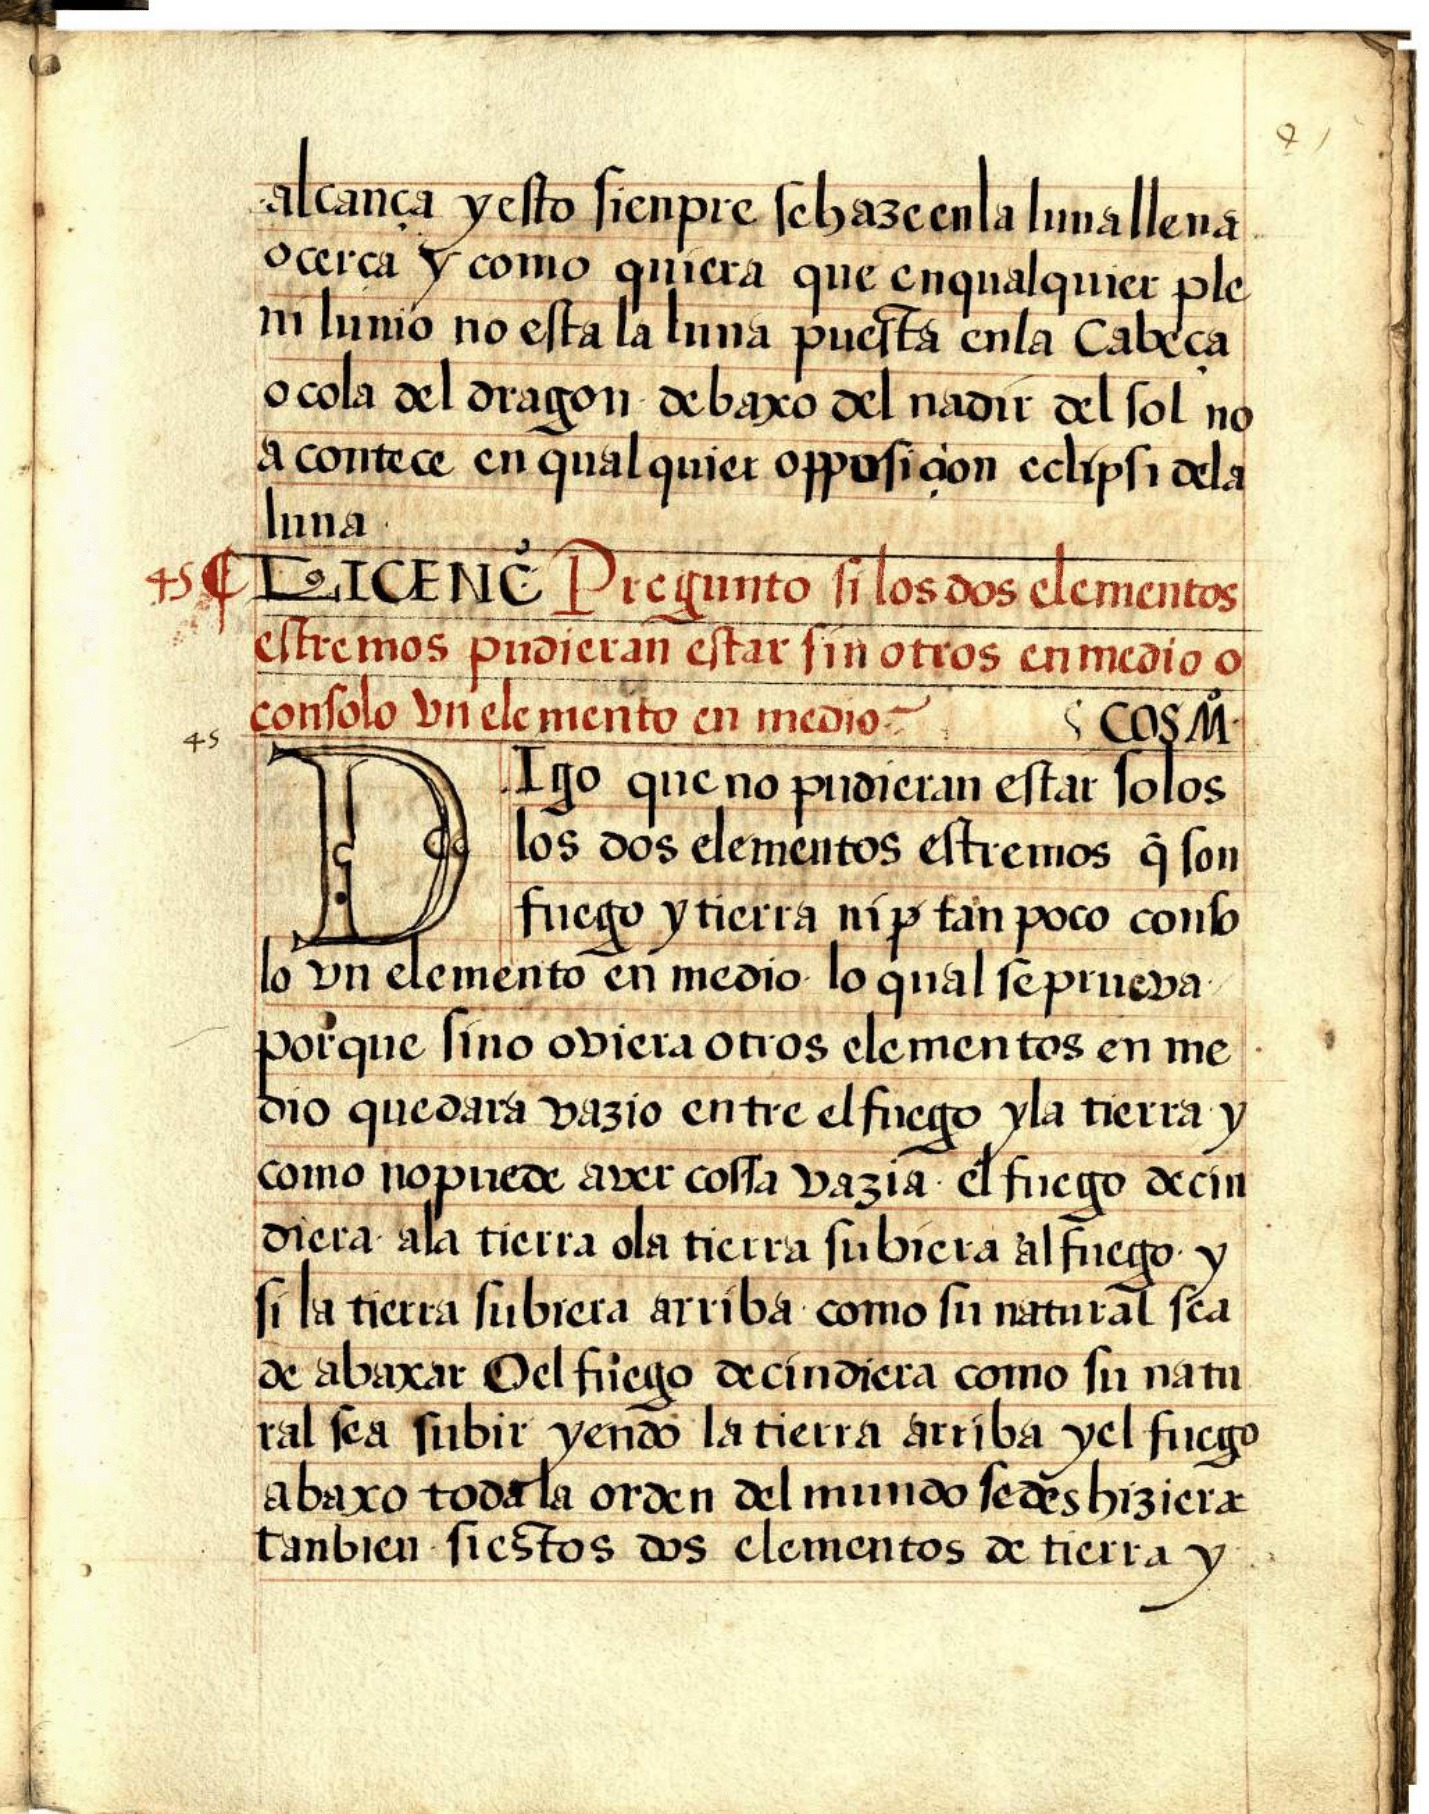 alcança y esto sienpre se haze en la luna llena
o cerca y como quiera que en qualquier ple
ni lunio no esta la luna puesta en la Cabeça
o cola del dragon debaxo del nadir del sol no
a contece en qual quier opposiçion eclipsi dela
luna.
45 ¶ LICENC̃ Pregunto si los dos elementos
estremos pudieran estar sin otros en medio o
con solo vn elemento en medio. COSM̊
45
DIgo que no pudieran estar solos
los dos elementos estremos q̃ son
fuego y tierra ni tan poco con so
lo vn elemento en medio. lo qual se prueva
porque sino oviera otros elementos en me
dio quedara vazio entre el fuego y la tierra y
como no puede aver cossa vazia. el fuego decin
diera ala tierra o la tierra subiera al fuego. y
si la tierra subiera arriba. como su natural sea
de abaxar O el fuego decindiera como su natu
ral sea subir yendo la tierra arriba y el fuego
abaxo toda la orden del mundo se des hiziera
tanbien si estos dos elementos de tierra y